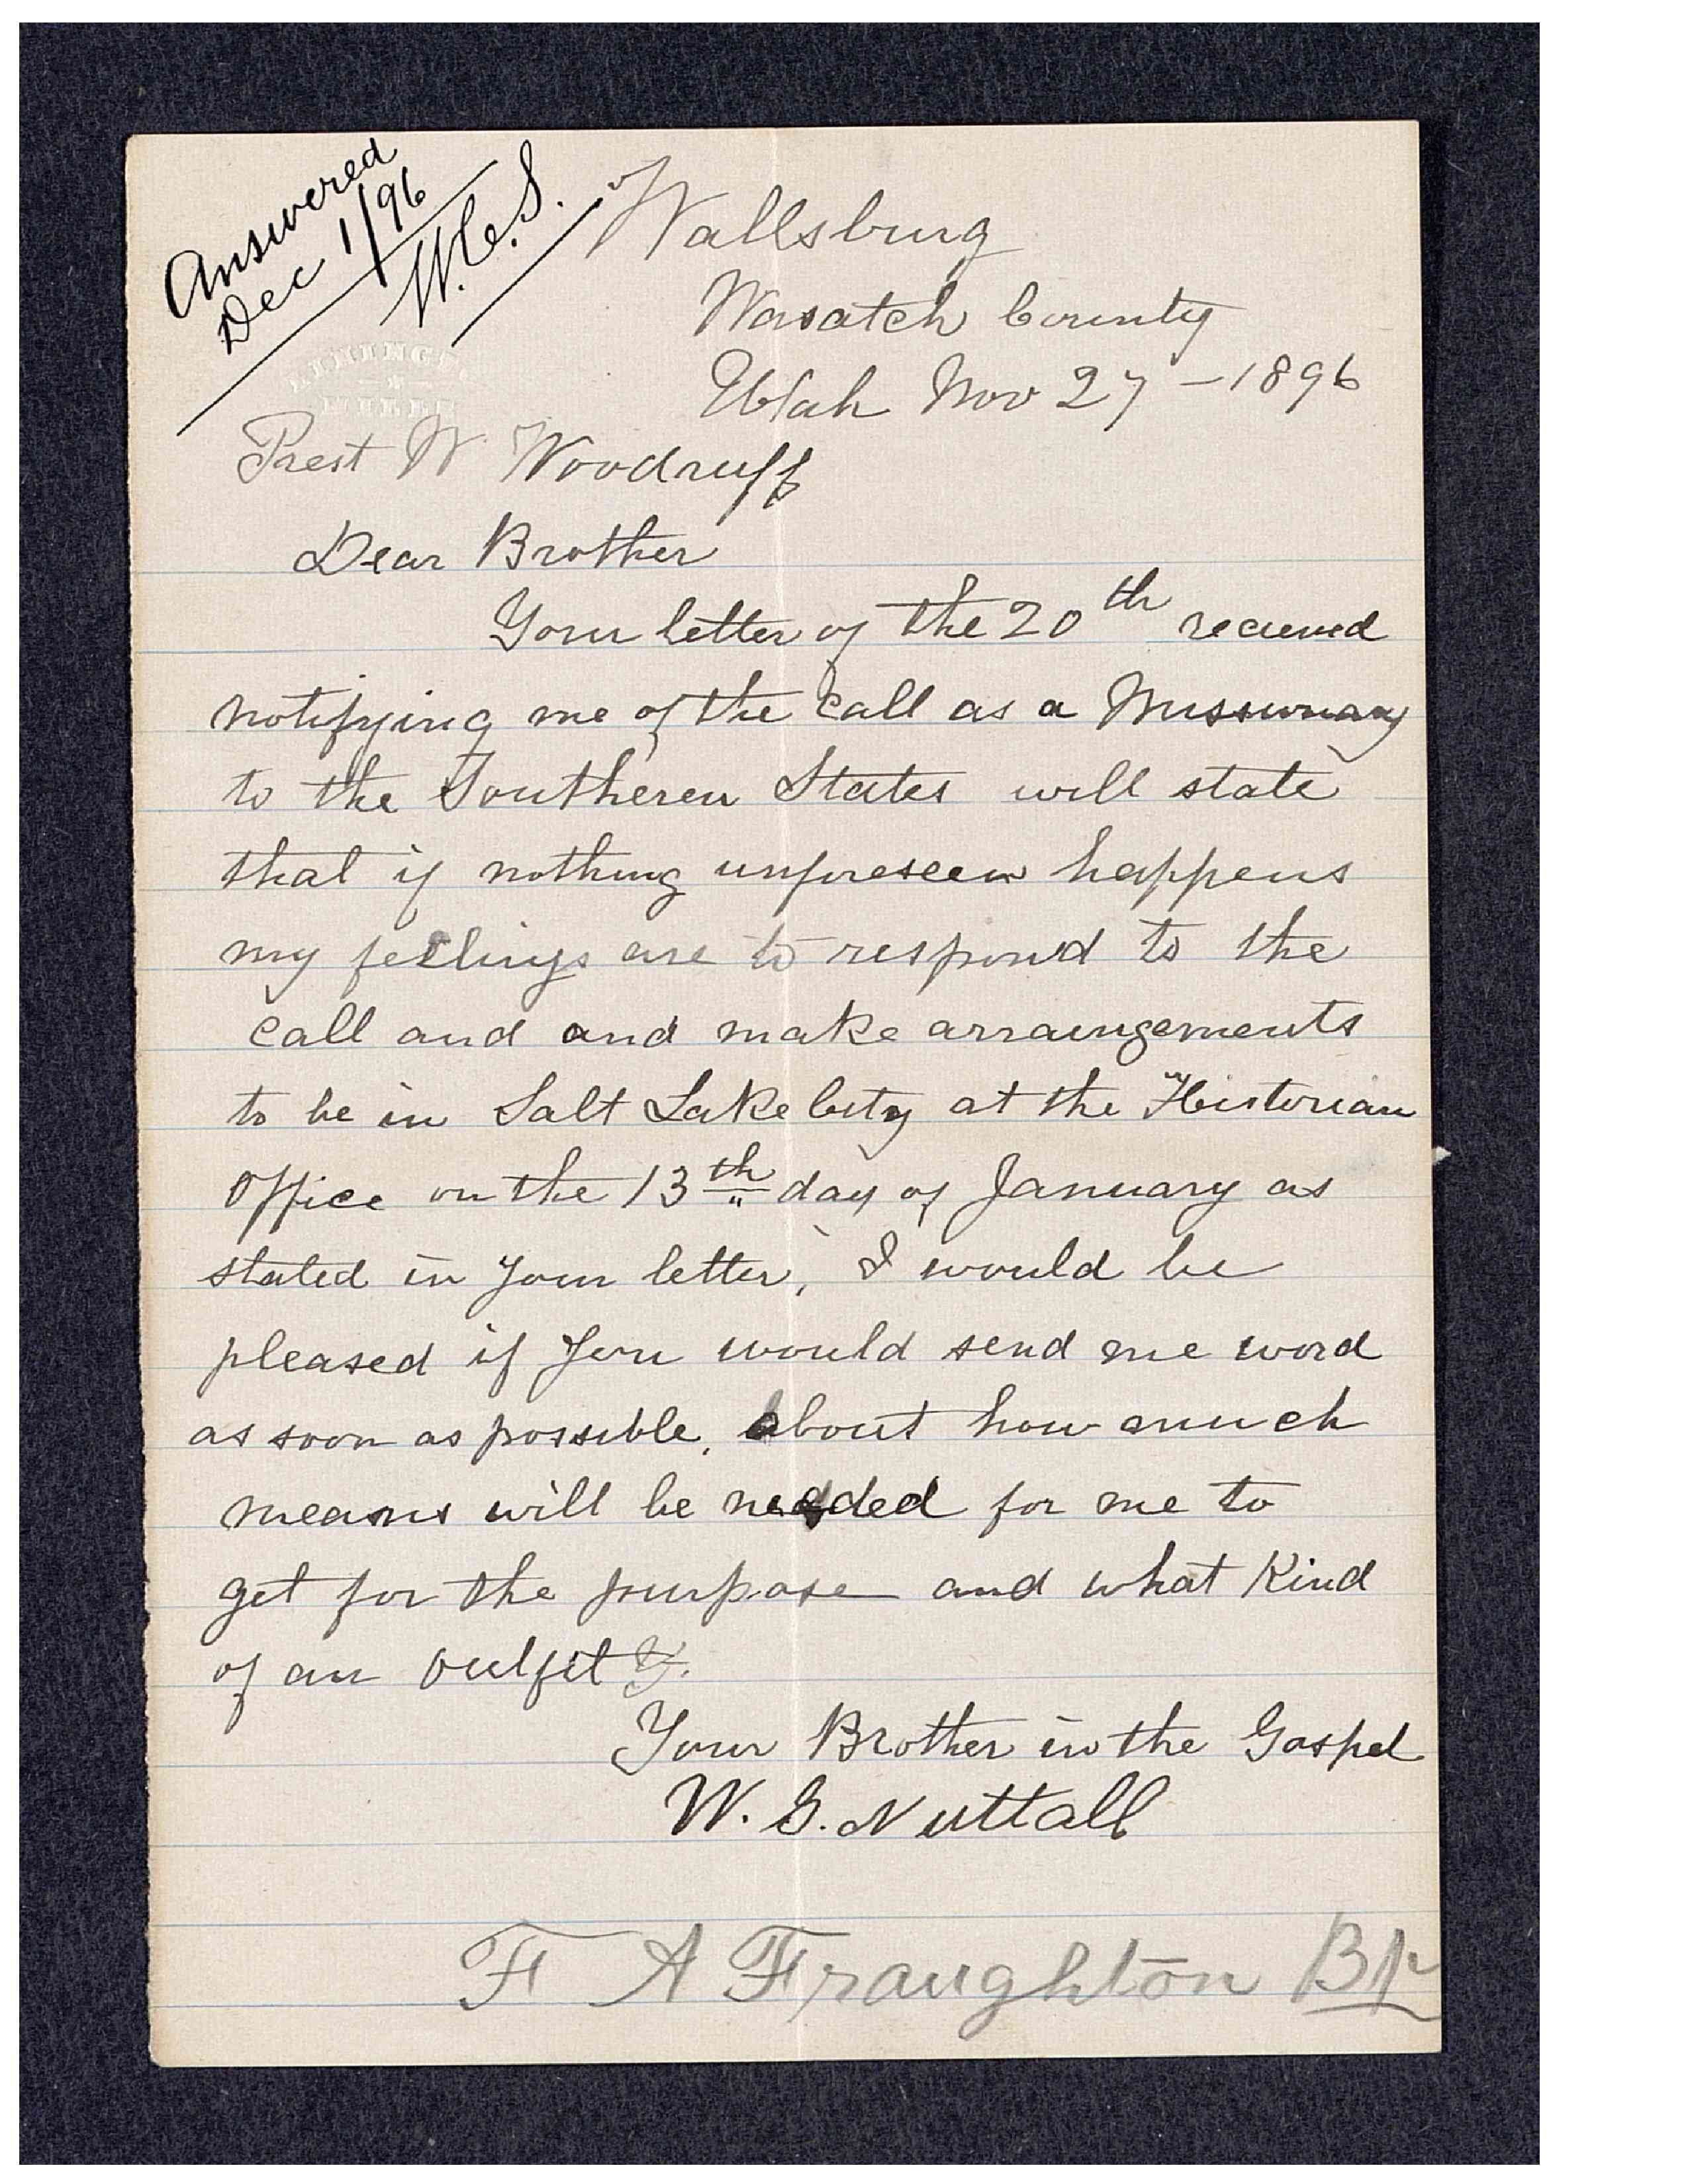 Answered
Dec 1/96
W.C.S.
Wallsburg
Wasatch County
Utah Nov 27 - 1896
Prest W Woodruff
Dear Brother
Your letter of the 20th recieved
notifying me of the call as a Missionary
to the Southeren States will state
that if nothing unforeseen happens
my feelings are to respond to the
call and and make arraingements
to be in Salt Lake City at the Historian
Office on the 13th day of January as
stated in your letter, I would be
pleased if you would send me word
as soon as possible. about how much
means will be needed for me to
get for the purpose and what Kind
of an outfit &.
Your Brother in the Gospel
W. G. Nuttall
F A Fraughton Bp